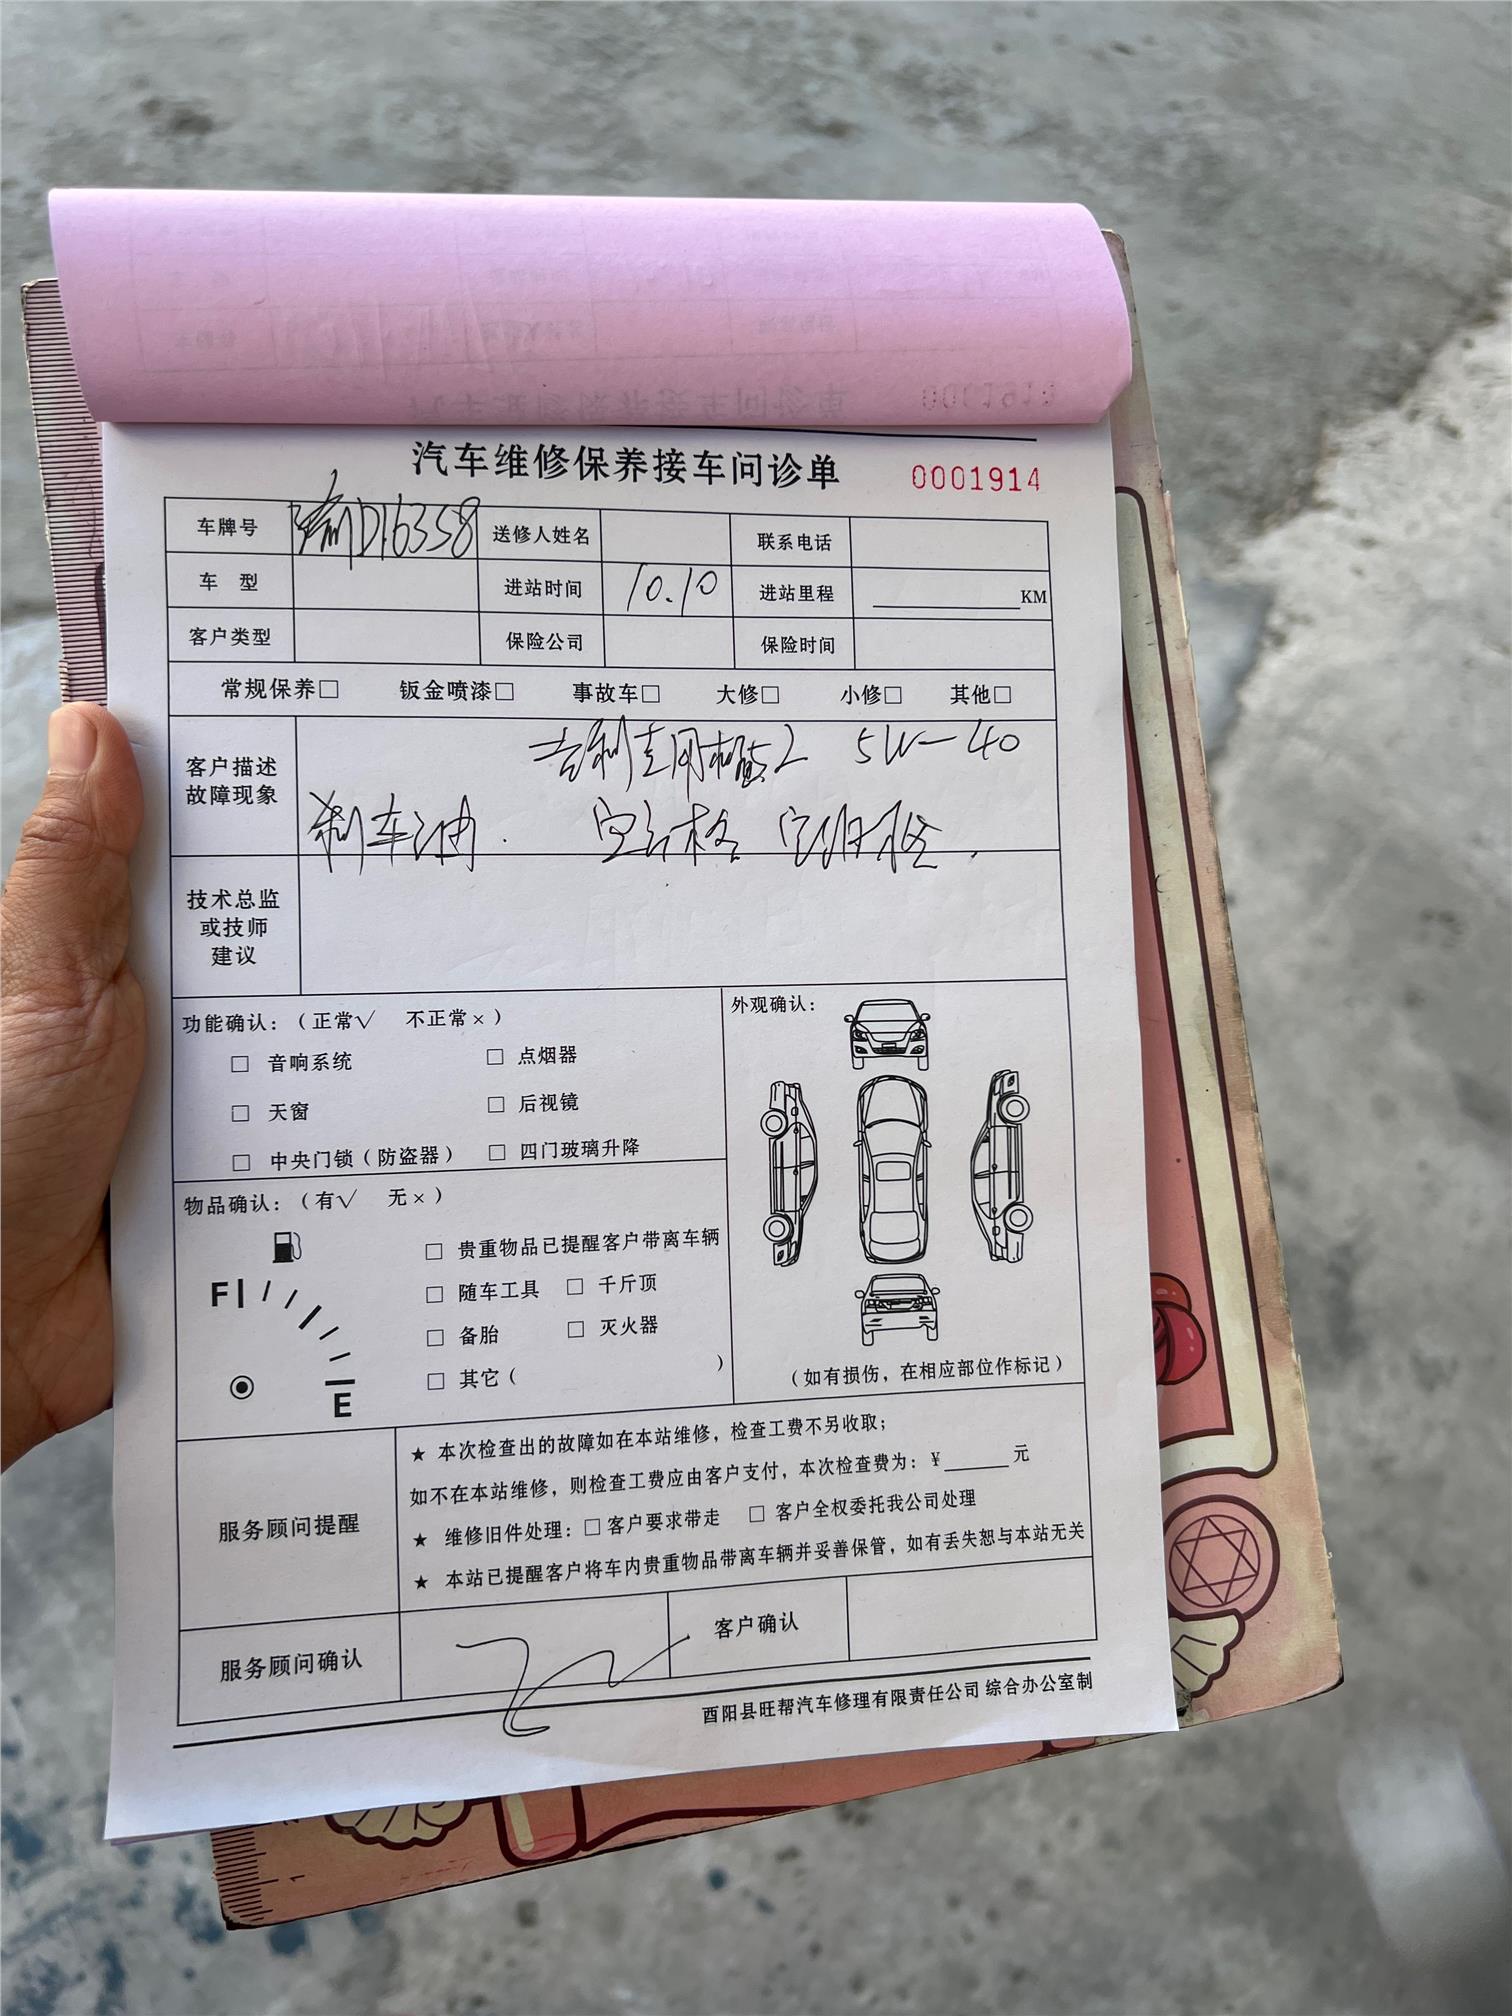 汽车维修保养接车问诊单 0001914
车牌号 D16358 送修人姓名 联系电话
车 型 进站时间 10.10 进站里程 KM
客户类型 保险公司 保险时间
常规保养□ 钣金喷漆□ 事故车□ 大修□ 小修□ 其他□
客户描述
故障现象
吉利专用 5W-40
刹车油. 空气格
技术总监
或技师
建议
功能确认：（正常√ 不正常×）
□ 音响系统 □ 点烟器
□ 天窗 □ 后视镜
□ 中央门锁（防盗器） □ 四门玻璃升降
外观确认：
（如有损伤，在相应部位作标记）
物品确认：（有√ 无×）
F
E
□ 贵重物品已提醒客户带离车辆
□ 随车工具 □ 千斤顶
□ 备胎 □ 灭火器
□ 其它（ ）
服务顾问提醒
★ 本次检查出的故障如在本站维修，检查工费不另收取；
如不在本站维修，则检查工费应由客户支付，本次检查费为：￥ 元
★ 维修旧件处理：□客户要求带走 □ 客户全权委托我公司处理
★ 本站已提醒客户将车内贵重物品带离车辆并妥善保管，如有丢失恕与本站无关
服务顾问确认 客户确认
酉阳县旺帮汽车修理有限责任公司 综合办公室制